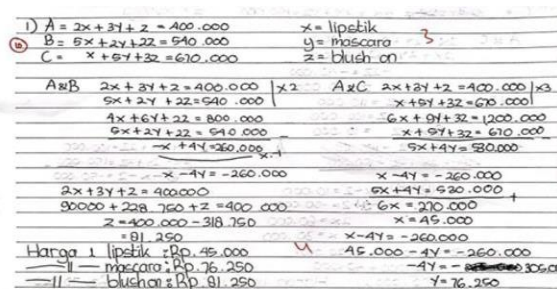 1) A = 2x + 3y + z = 400.000
B = 5x + 2y + 2z = 540.000
C = x + 5y + 3z = 670.000
x = lipstik
y = mascara
z = blush on
3
A&B 2x + 3y + z = 400.000 | x2
5x + 2y + 2z = 540.000
4x + 6y + 2z = 800.000
5x + 2y + 2z = 540.000 -
-x + 4y = 260.000
x -1
x - 4y = -260.000
A&C 2x + 3y + z = 400.000 | x3
x + 5y + 3z = 670.000
6x + 9y + 3z = 1200.000
x + 5y + 3z = 670.000 -
5x + 4y = 530.000
x - 4y = -260.000
5x + 4y = 530.000 +
6x = 270.000
x = 45.000
x - 4y = -260.000
45.000 - 4y = -260.000
-4y = - 305.0
y = 76.250
2x + 3y + z = 400000
90000 + 228.750 + z = 400.000
z = 400.000 - 318.750
= 81.250
Harga 1 lipstik : Rp. 45.000
—— 11 — mascara : Rp. 76.250
—— 11 — blush on : Rp. 81.250
4